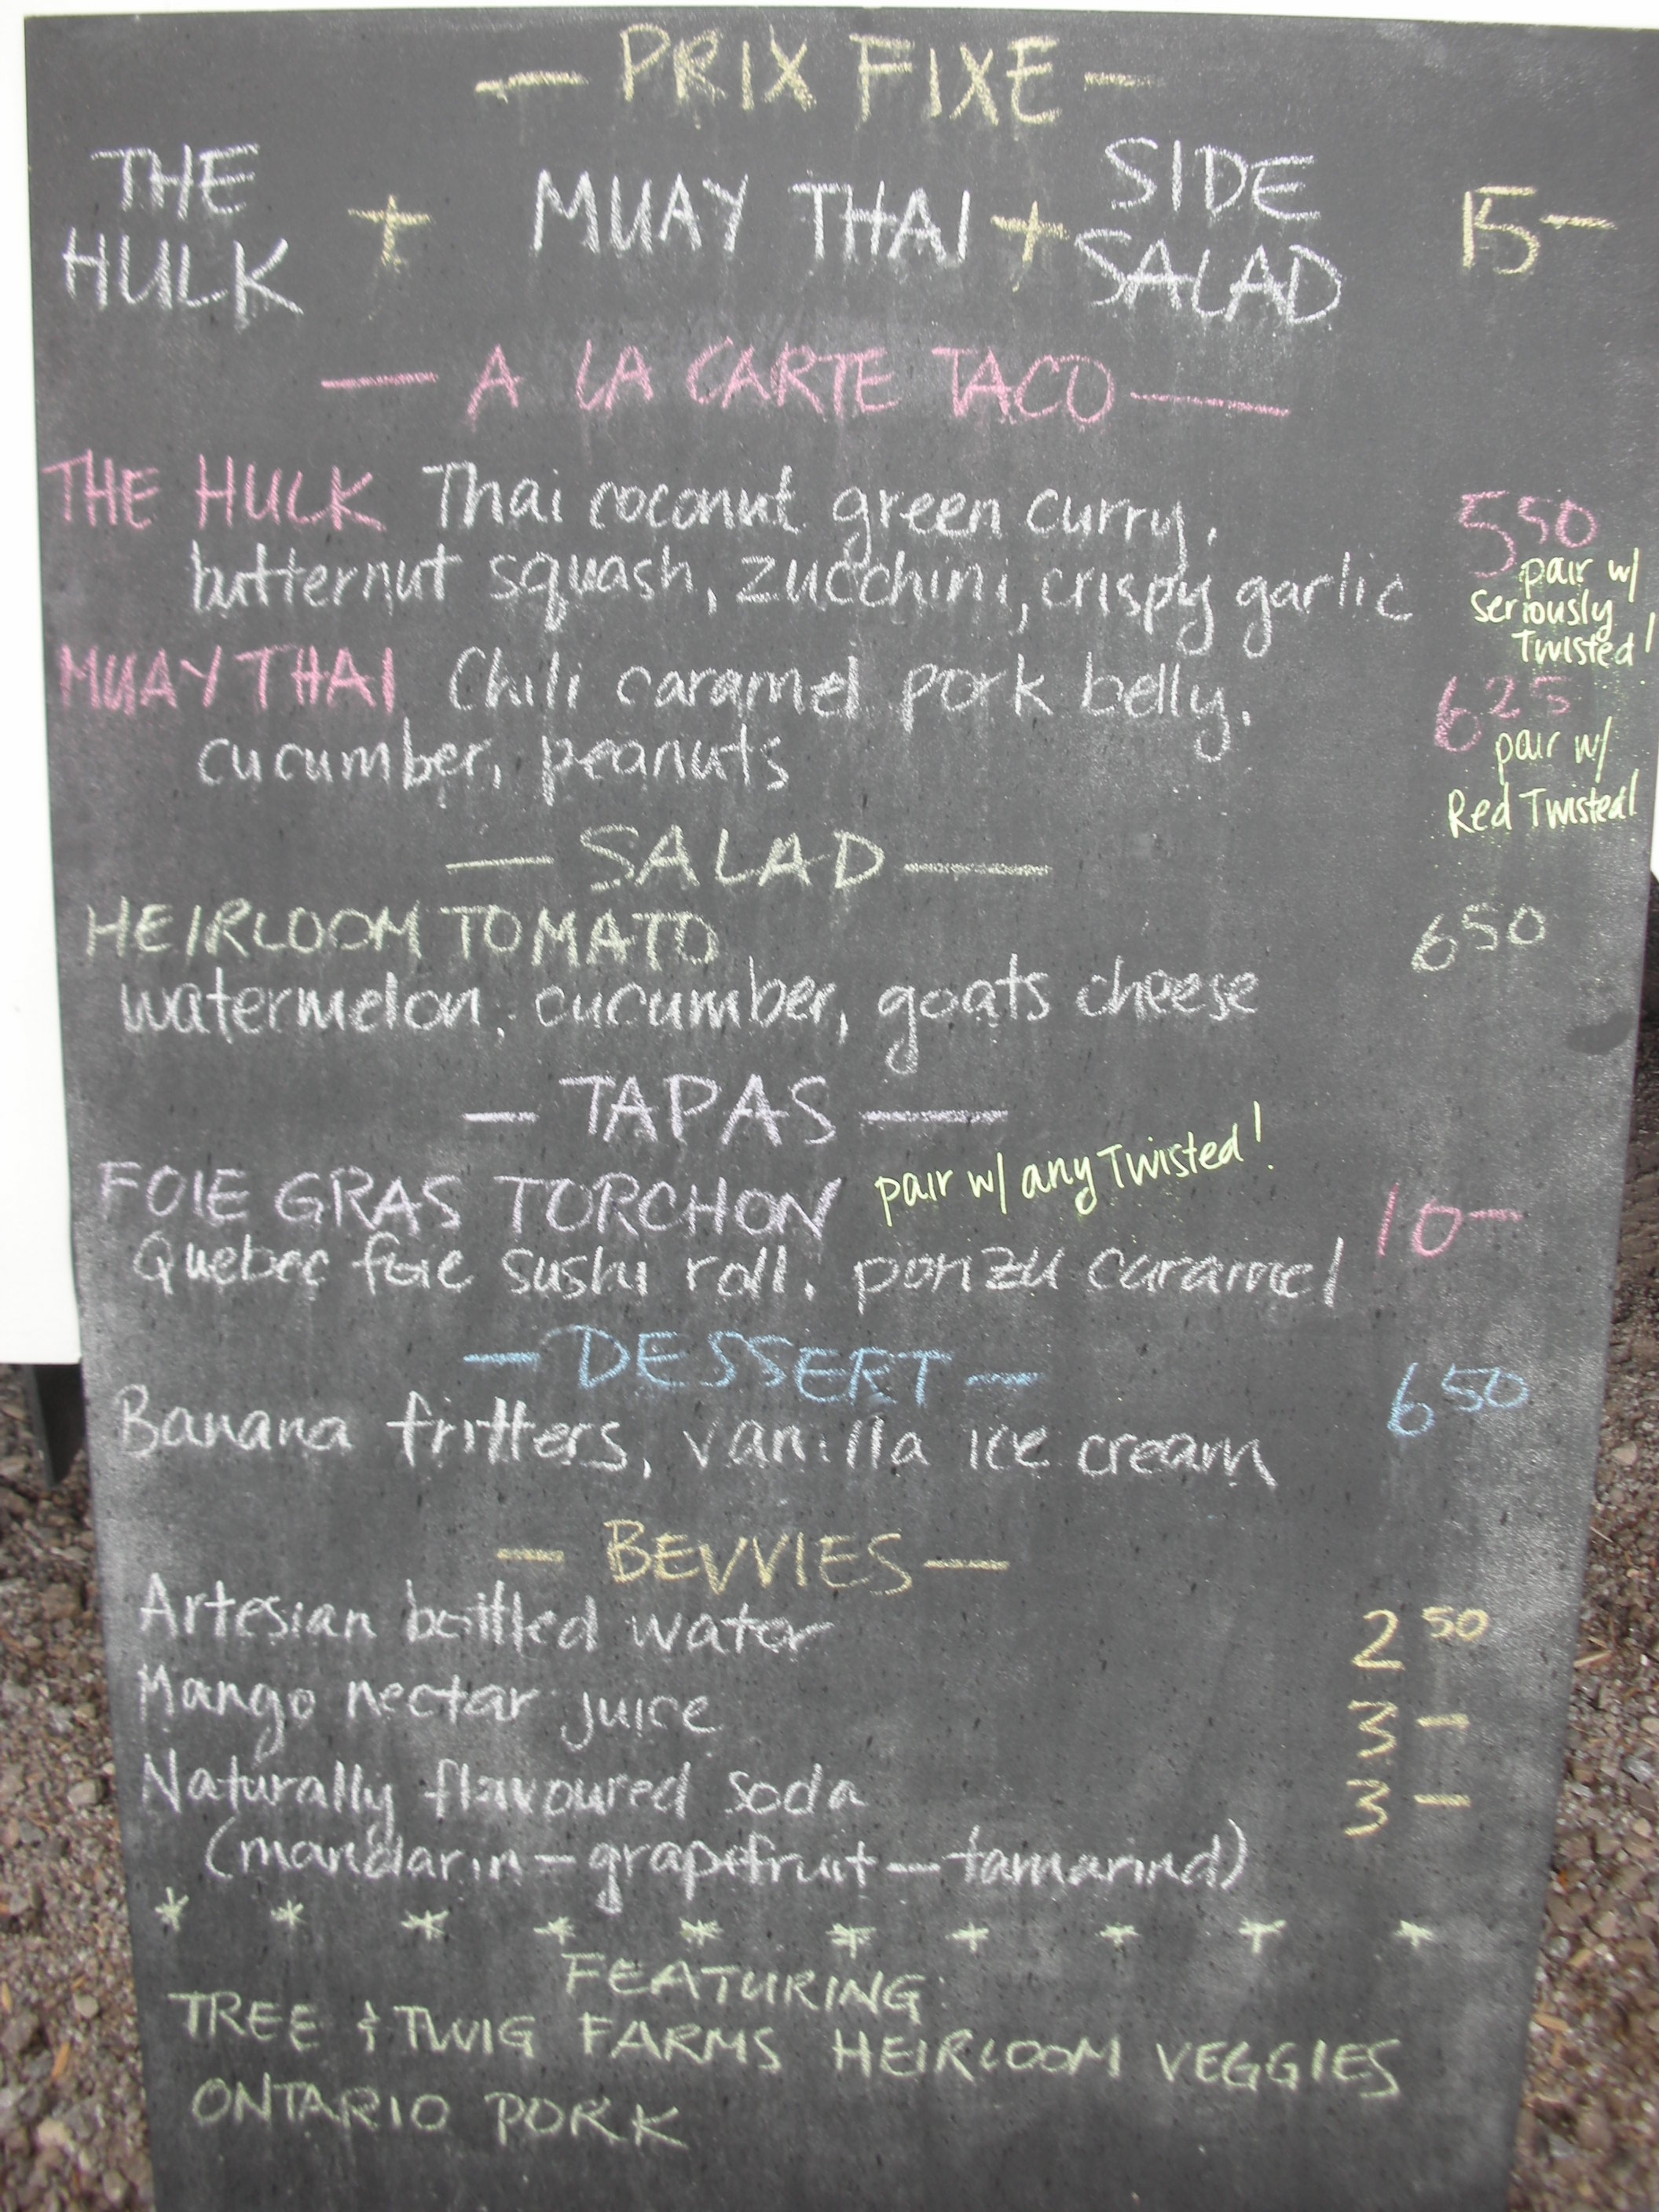 — PRIX FIXE —
THE HULK + MUAY THAI + SIDE SALAD 15—
— A LA CARTE TACO —
THE HULK Thai coconut green curry, 5 50
butternut squash, zucchini, crispy garlic
pair w/
seriously
Twisted!
MUAY THAI Chili caramel pork belly, 6 25
cucumber, peanuts
pair w/
Red Twisted!
— SALAD —
HEIRLOOM TOMATO 6 50
watermelon, cucumber, goats cheese
— TAPAS —
FOIE GRAS TORCHON pair w/ any Twisted! 10—
Quebec foie sushi roll, ponzu caramel
— DESSERT — 6 50
Banana fritters, vanilla ice cream
— BEVVIES —
Artesian bottled water 2 50
Mango nectar juice 3 —
Naturally flavoured soda 3 —
(mandarin – grapefruit – tamarind)
* * * * * * * * * *
FEATURING
TREE & TWIG FARMS HEIRLOOM VEGGIES
ONTARIO PORK